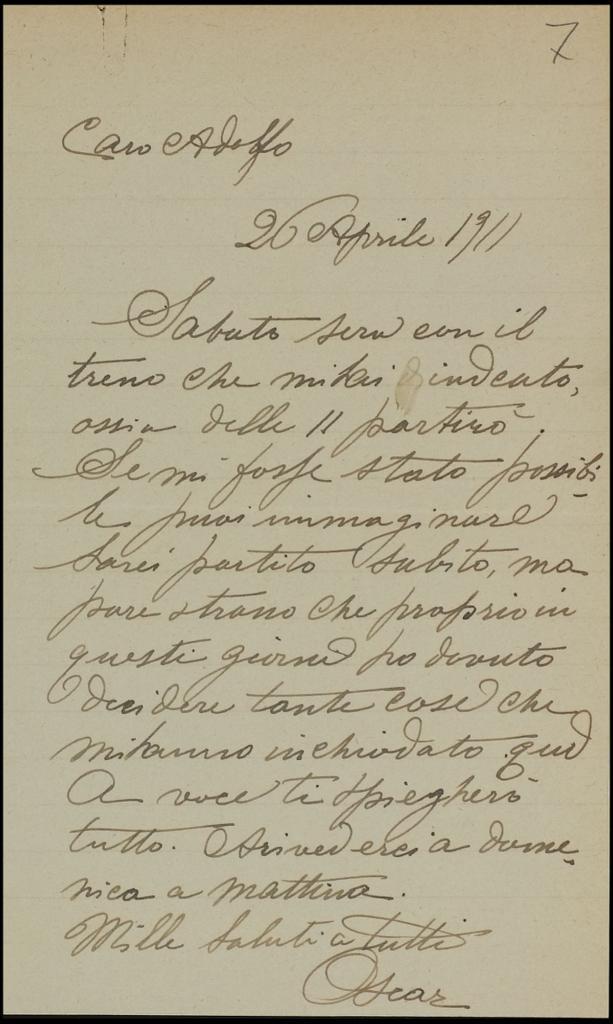 7
Caro Adolfo
26 Aprile 1911
Sabato sera con il
treno che mi hai indicato,
ossia delle 11 partirò.
Se mi fosse stato possibi-
le, puoi immaginare
sarei partito subito, ma
pare strano che proprio in
questi giorni ho dovuto
decidere tante cose che
mi hanno inchiodato qui
A voce ti spiegherò
tutto. Arrivederci a dome-
nica a mattina.
Mille saluti a tutti
Oscar